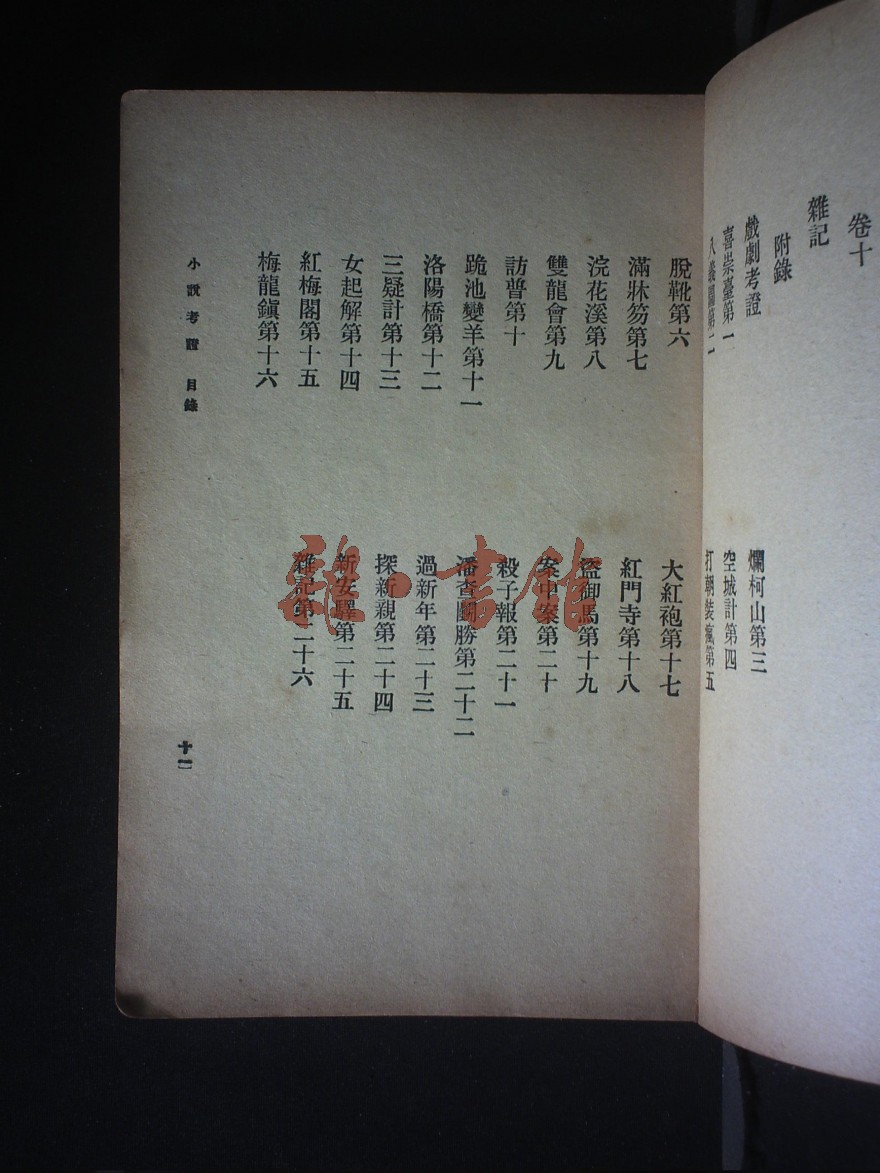 卷十
雜記
附錄
戲劇考證
喜崇臺第一
爛柯山第三
空城計第四
打朝裝瘋第五
脫靴第六
滿牀笏第七
浣花溪第八
雙龍會第九
訪普第十
跪池變羊第十一
洛陽橋第十二
三疑計第十三
女起解第十四
紅梅閣第十五
梅龍鎭第十六
大紅袍第十七
紅門寺第十八
盜御馬第十九
案中案第二十
殺子報第二十一
潘查鬭勝第二十二
過新年第二十三
探新親第二十四
新安驛第二十五
雜記第二十六
小說考證 目錄
十一
雜·書館